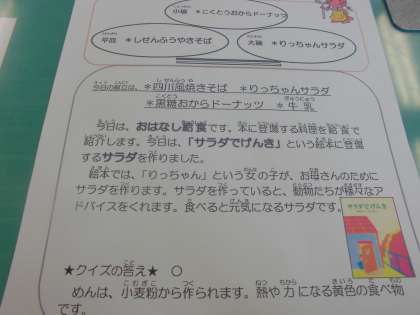 小皿
＊こくとうおからドーナッツ
平皿 ＊しせんふうやきそば
大碗 ＊りっちゃんサラダ
今日の献立は、＊四川風焼きそば ＊りっちゃんサラダ
＊黒糖おからドーナッツ ＊牛乳
今日は、おはなし給食です。本に登場する料理を給食で
紹介します。今日は、「サラダでげんき」という絵本に登場
するサラダを作りました。
絵本では、「りっちゃん」という女の子が、お母さんのために
サラダを作ります。サラダを作っていると、動物たちが様々なア
ドバイスをくれます。食べると元気になるサラダです。
サラダでげんき
★クイズの答え★ ○
めんは、小麦粉から作られます。熱や力になる黄色の食べ物
です。